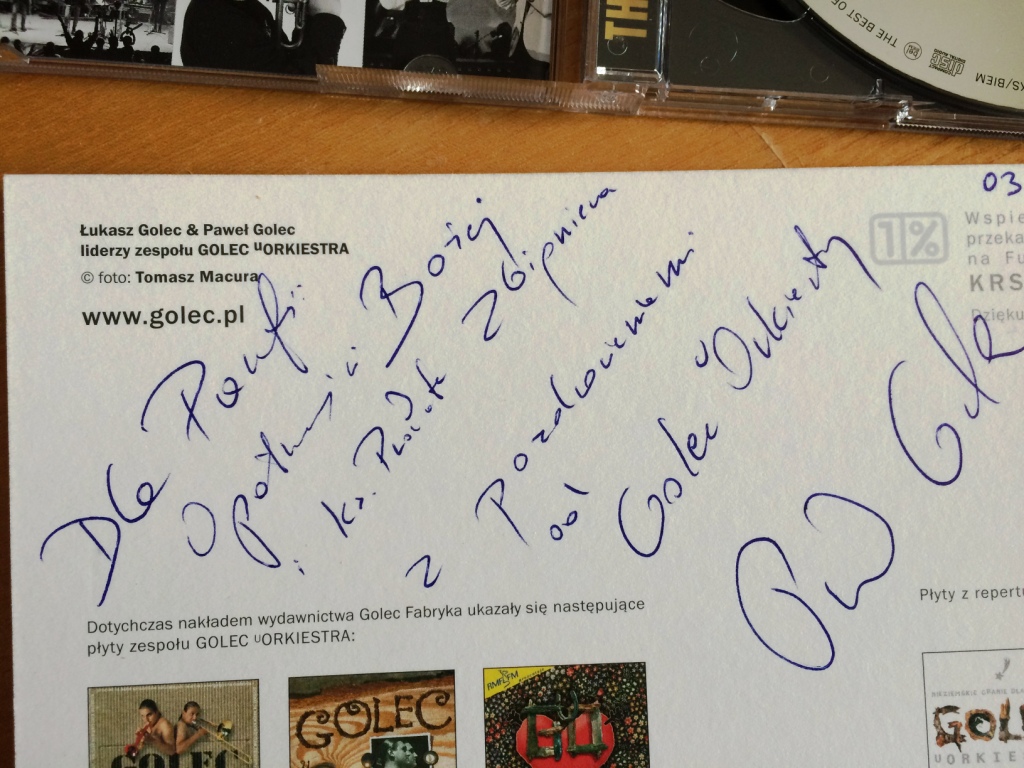 THE BEST OF
COMPACT
disc
DIGITAL AUDIO
KS/BIEM
TH
03
Łukasz Golec & Paweł Golec
liderzy zespołu GOLEC uORKIESTRA
© foto: Tomasz Macura
www.golec.pl
1%
Wspie
przeka
na Fu
KRS
Dzięku
Dla Parafii
Opatrzności Bożej
i ks.
Zbigniewa
z Pozdrowieniami
od Golec uOrkiestry
Dotychczas nakładem wydawnictwa Golec Fabryka ukazały się następujące
płyty zespołu GOLEC uORKIESTRA:
Płyty z repertu
GOLEC
GOLEC
RMF FM
GOL
uORKIE